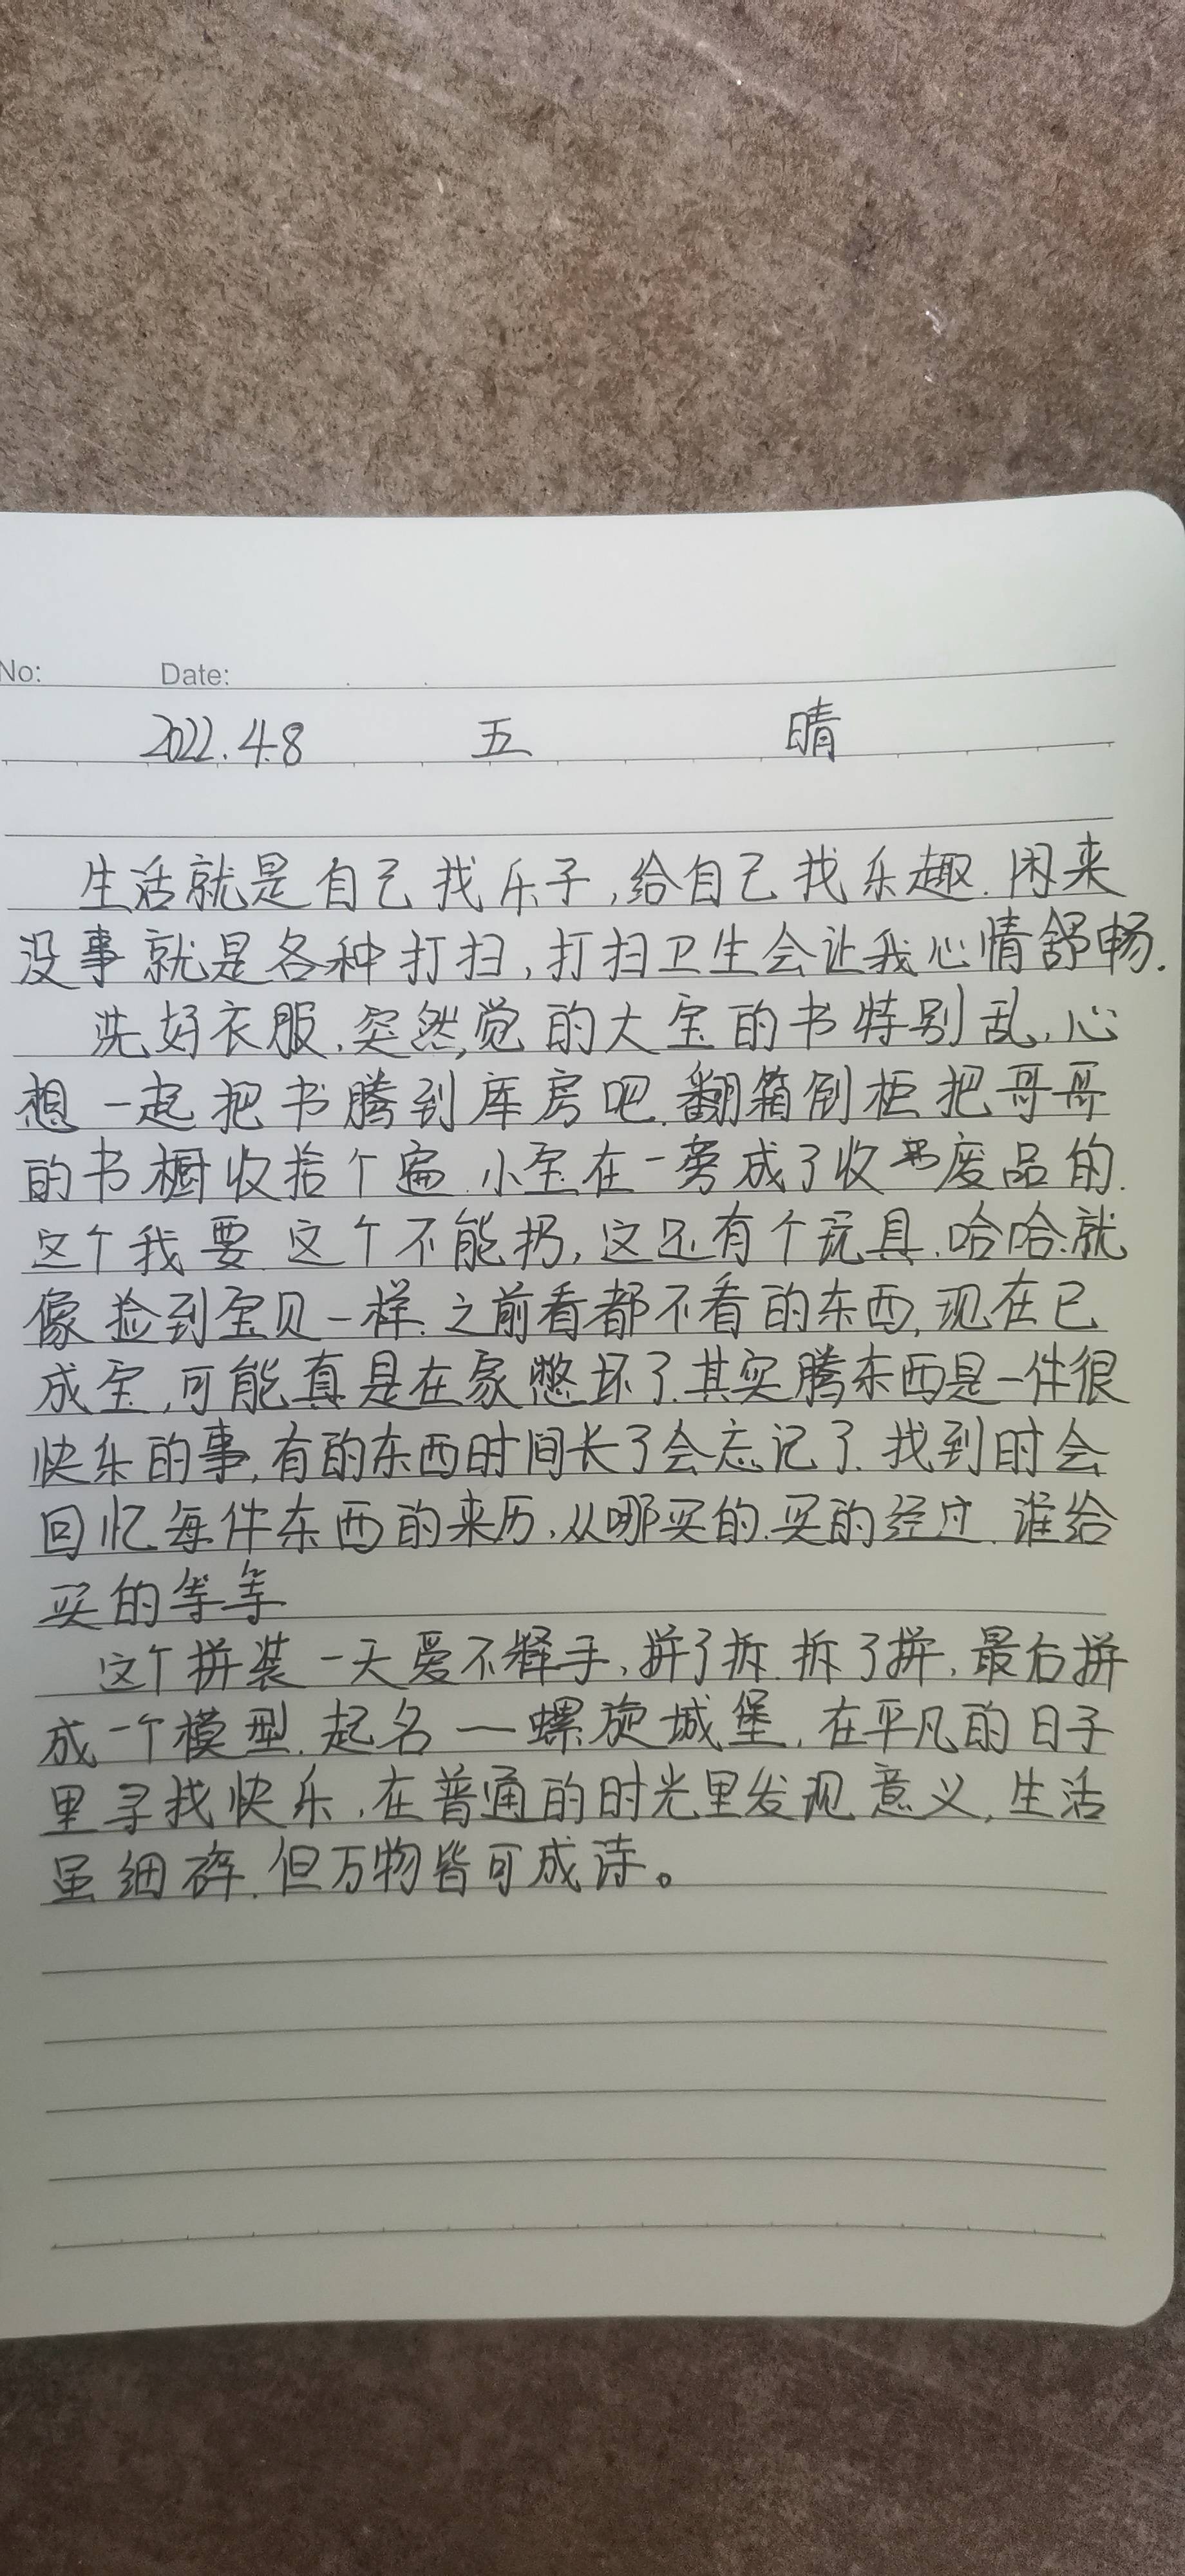 No: Date:
2022.4.8 五 晴
生活就是自己找乐子,给自己找乐趣.闲来
没事就是各种打扫,打扫卫生会让我心情舒畅.
洗好衣服.突然,觉的大宝的书特别乱,心
想一起把书腾到库房吧.翻箱倒柜把哥哥
的书橱收拾个遍.小宝在一旁成了收废品的.
这个我要.这个不能扔,这还有个玩具.哈哈.就
像捡到宝贝一样.之前看都不看的东西,现在已
成宝,可能真是在家憋坏了.其实腾东西是一件很
快乐的事,有的东西时间长了会忘记了.找到时会
回忆每件东西的来历,从哪买的.买的经过.谁给
买的等等
这个拼装一天爱不释手,拼了拆.拆了拼,最后拼
成一个模型.起名—螺旋城堡,在平凡的日子
里寻找快乐,在普通的时光里发现意义,生活
虽细碎.但万物皆可成诗。